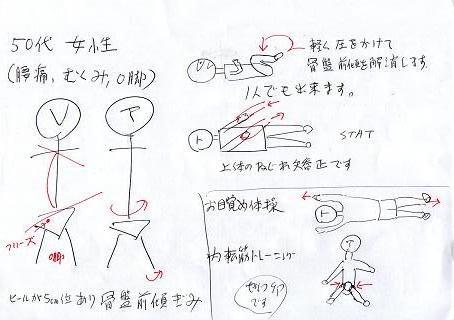 50代 女性
(腰痛, むくみ, O脚)
V
T
フリーズ
O脚
ヒールが5cm位あり骨盤前傾ぎみ
軽く圧をかけて
骨盤前傾を解消します
1人でも出来ます。
T
STAT
上体のねじれ矯正です
お目覚め体操
T
内転筋トレーニング
T
セルフケア
です